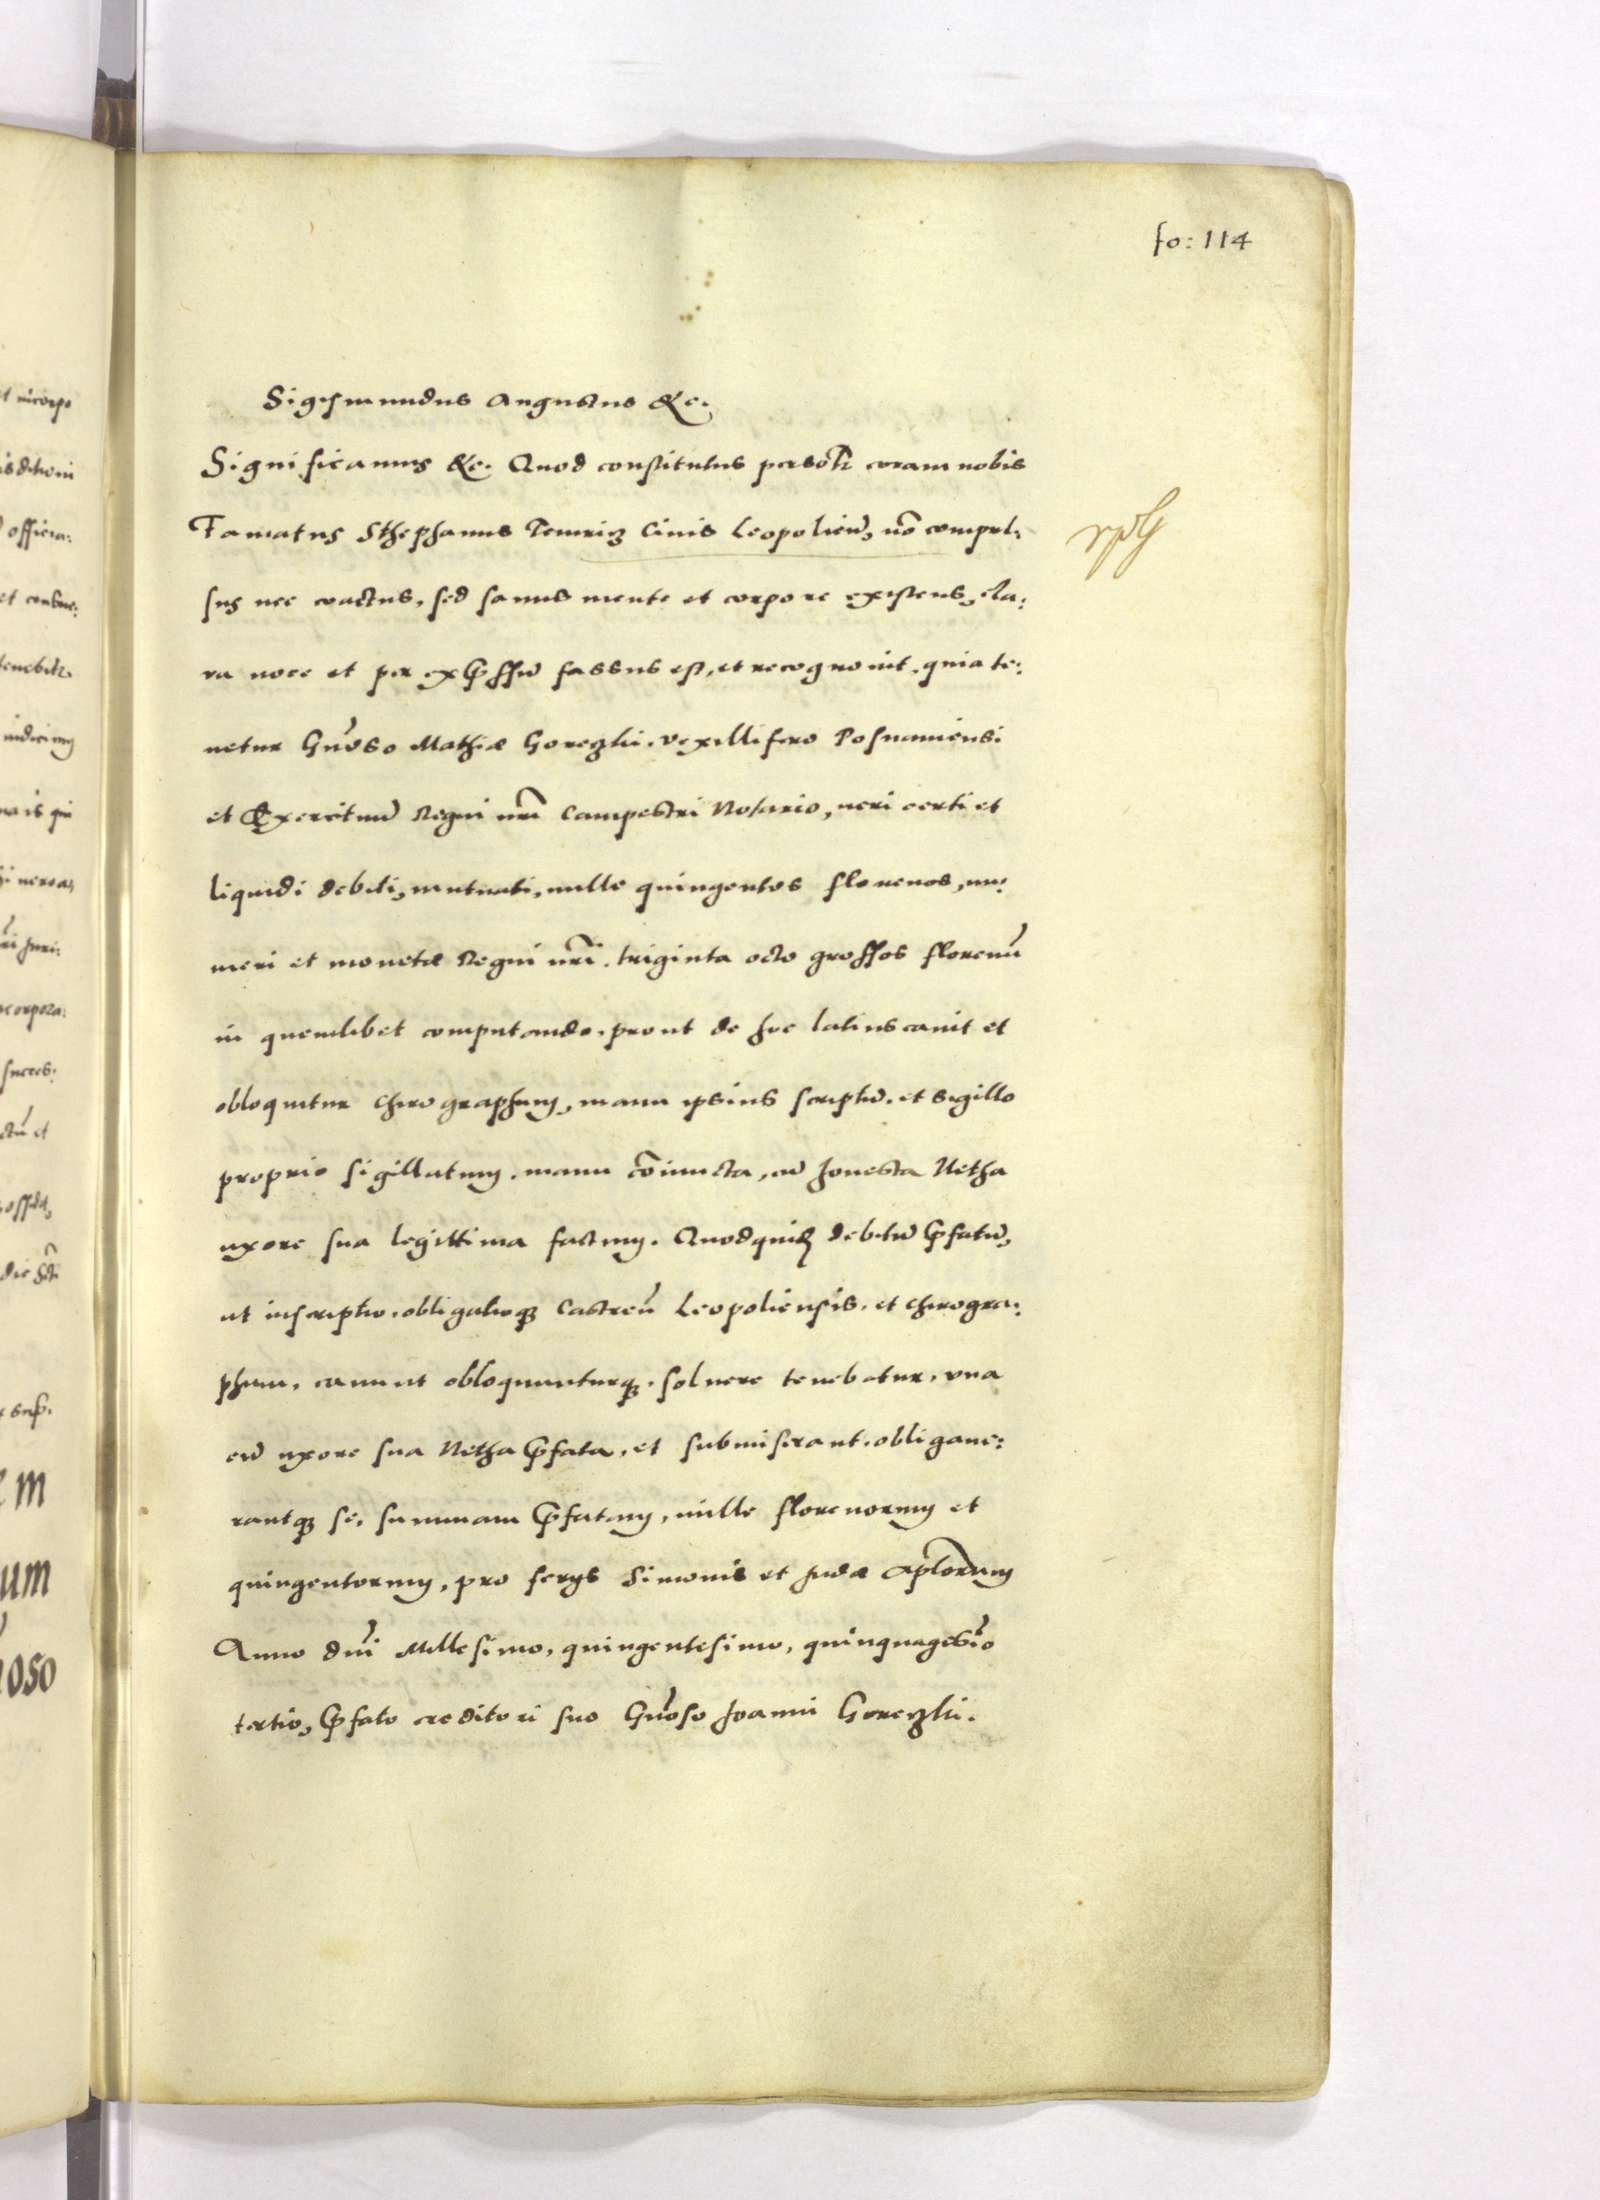 fo: 114
Sigismundus Augustus &c.
Significamus &c. Quod constitutus persolr coram nobis
Famatus Sthephanus Temriz Civis Leopolien, no compul:
sus nec coactus, sed sanus mente et corpore existens, cla:
ra uoce et per expssu fassus est, et recognouit, quia te:
netur Gnoso Mathiæ Gorezki, vexillifero Posnaniensi
et Exercituu Regni nri Campestri Notario, ueri certi et
liquidi debiti, mutuati, mille quingentos florenos, nu:
meri et monetæ Regni nri, triginta octo grossos florenu
in quemlibet computando, prout de hoc latius cauit et
obloquitur chirographum, manu ipsius scriptu, et sigillo
proprio sigillatum, manu coiuncta, cu honesta Netha
uxore sua legittima factum. Quodquid debitu pfatu,
ut inscriptio, obligatioq Castren Leopoliensis, et chirogra:
phum, cauunt obloquunturq, soluere tenebatur, una
cu uxore sua Netha pfata, et submiserant, obligaue:
rantq se, summam pfatam, mille florenorum et
quingentorum, pro ferys Simonis et Judæ Aplorum
Anno dni Millesimo, quingentesimo, quinquagesio
tertio, pfato creditori suo Gnoso Joanni Gorezki.
et incorpo
officia:
et consue:
iudicium
na is qui
ri Juri:
ncorpora:
succes:
ctu et
m
um
oso